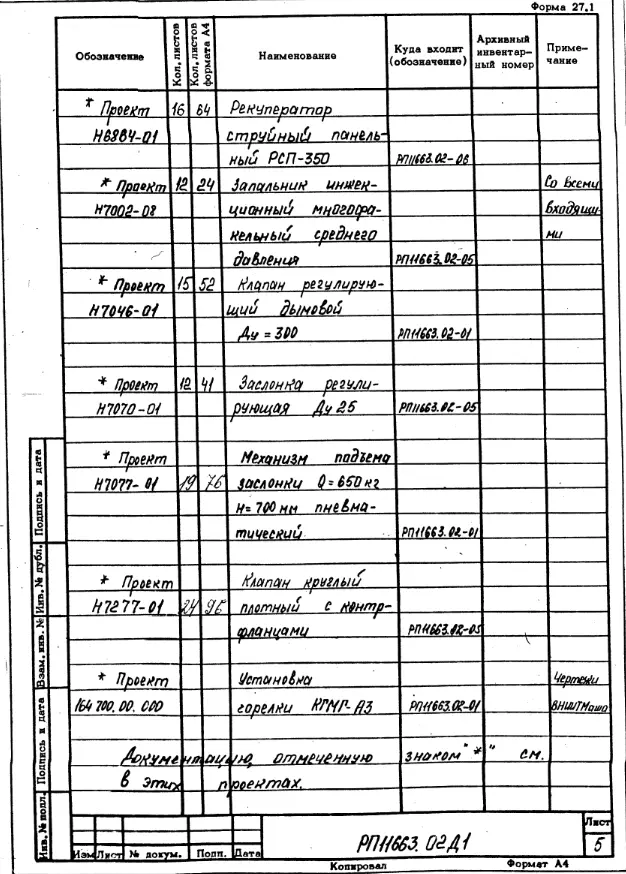 Форма 27.1
Обозначение Кол. листов Кол. листов формата А4 Наименование Куда входит (обозначение) Архивный инвентар- ный номер Приме- чание
* Проект 16 64 Рекуператор
Н6884-01 струйный панель-
ный РСП-350 РП11663.02-06
* Проект 12 24 Запальник инжек- Со всеми
Н7002-08 ционный многофа- входящи-
кельный среднего ми
давления РП11663.02-05
* Проект 15 52 Клапан регулирую-
Н7046-01 щий дымовой
Ду = 300 РП11663.02-01
* Проект 12 41 Заслонка регули-
Н7070-01 рующая Ду 25 РП11663.02-05
* Проект Механизм подъема
Н7077-01 19 76 заслонки Q=650кг
Н=700 мм пневма-
тический РП11663.02-01
* Проект Клапан круглый
Н7277-01 24 96 плотный с контр-
фланцами РП11663.02-05
* Проект Установка Чертежи
164700.00.000 горелки КГМГ-А3 РП11663.02-01
Документацию, отмеченную знаком "*" см.
в этих проектах.
Инв. № подл. Подпись и дата Взам. инв. № Инв. № дубл. Подпись и дата
Изм Лист № докум. Подп. Дата
РП11663.02Д1
Лист
5
Копировал Формат А4